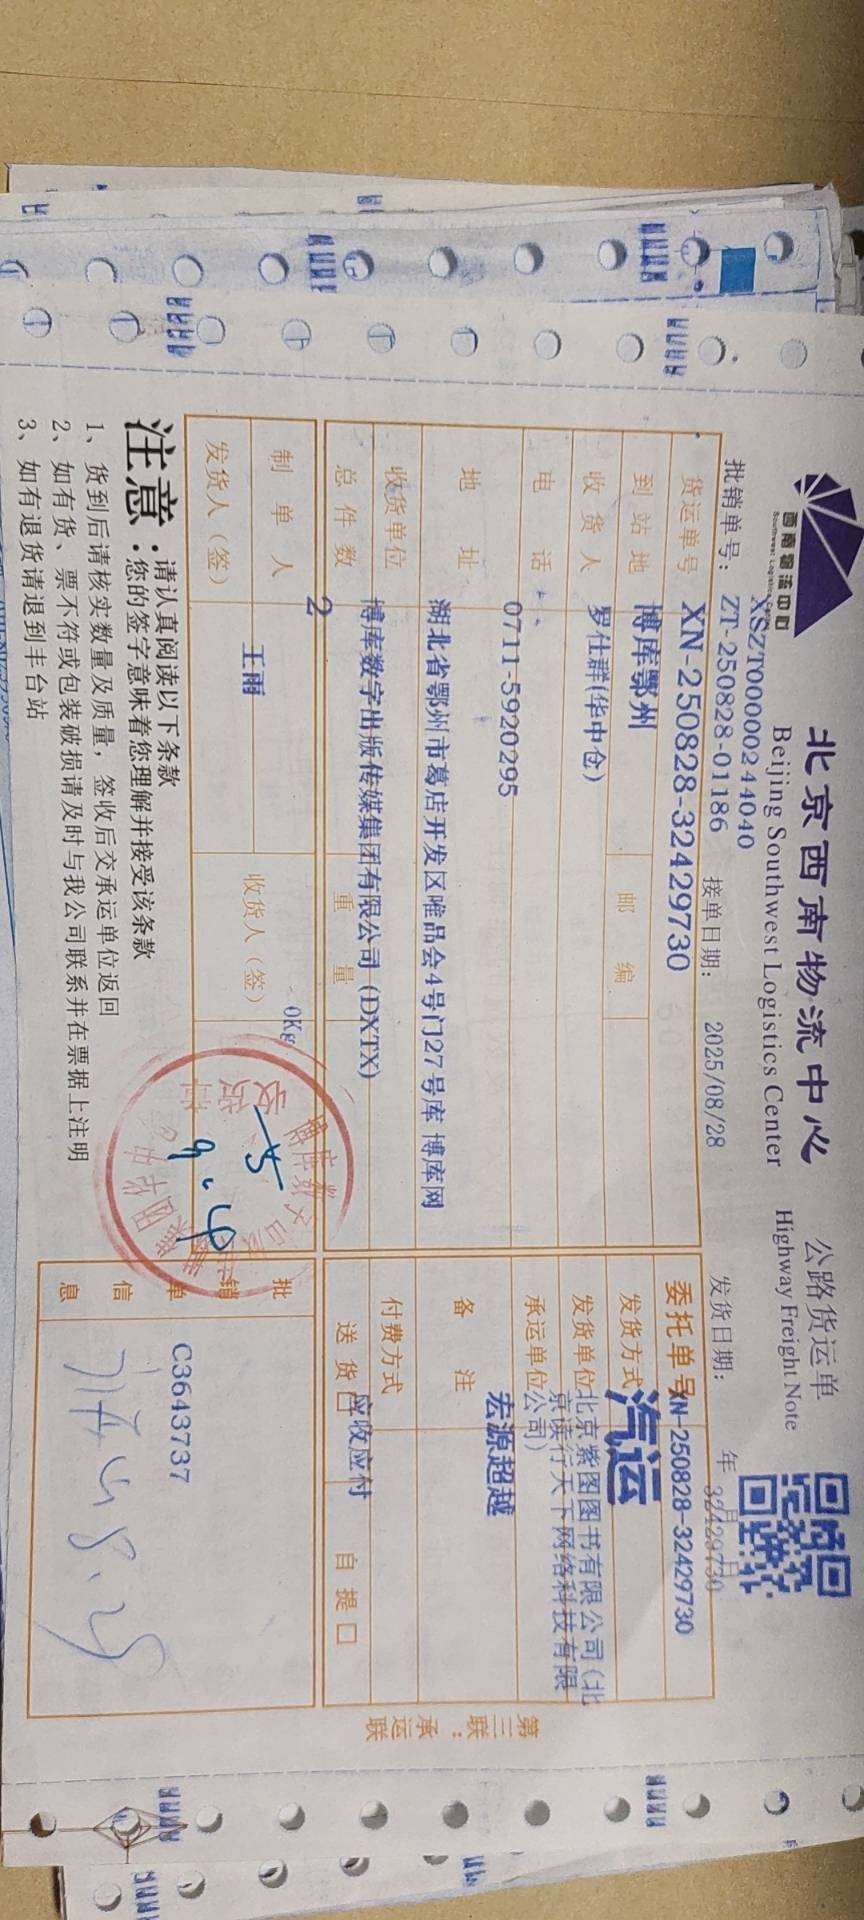 西南物流中心
Southwest Logistics Center
北京西南物流中心
公路货运单
Beijing Southwest Logistics Center
Highway Freight Note
XSZT00000244040
批销单号: ZT-250828-01186 接单日期: 2025/08/28 发货日期: 年 月 日
32429730
货运单号 XN-250828-32429730 委托单号 XN-250828-32429730
到站地 博库鄂州 邮编 发货方式 汽运
收货人 罗仕群(华中仓) 发货单位 北京紫图图书有限公司(北
京读行天下网络科技有限
公司)
电话 0711-5920295 承运单位 宏源超越
地址 湖北省鄂州市葛店开发区唯品会4号门27号库 博库网 备注
收货单位 博库数字出版传媒集团有限公司(DXTX) 付费方式 应收应付
总件数 2 重量 0Kg 送货口 自提口
制单人 王雨 收货人(签) 批销单信息 C3643737
发货人(签)
收货章
9.4
注意:
请认真阅读以下条款
您的签字意味着您理解并接受该条款
1、货到后请核实数量及质量,签收后交承运单位返回
2、如有货、票不符或包装破损请及时与我公司联系并在票据上注明
3、如有退货请退到丰台站
第三联:承运联